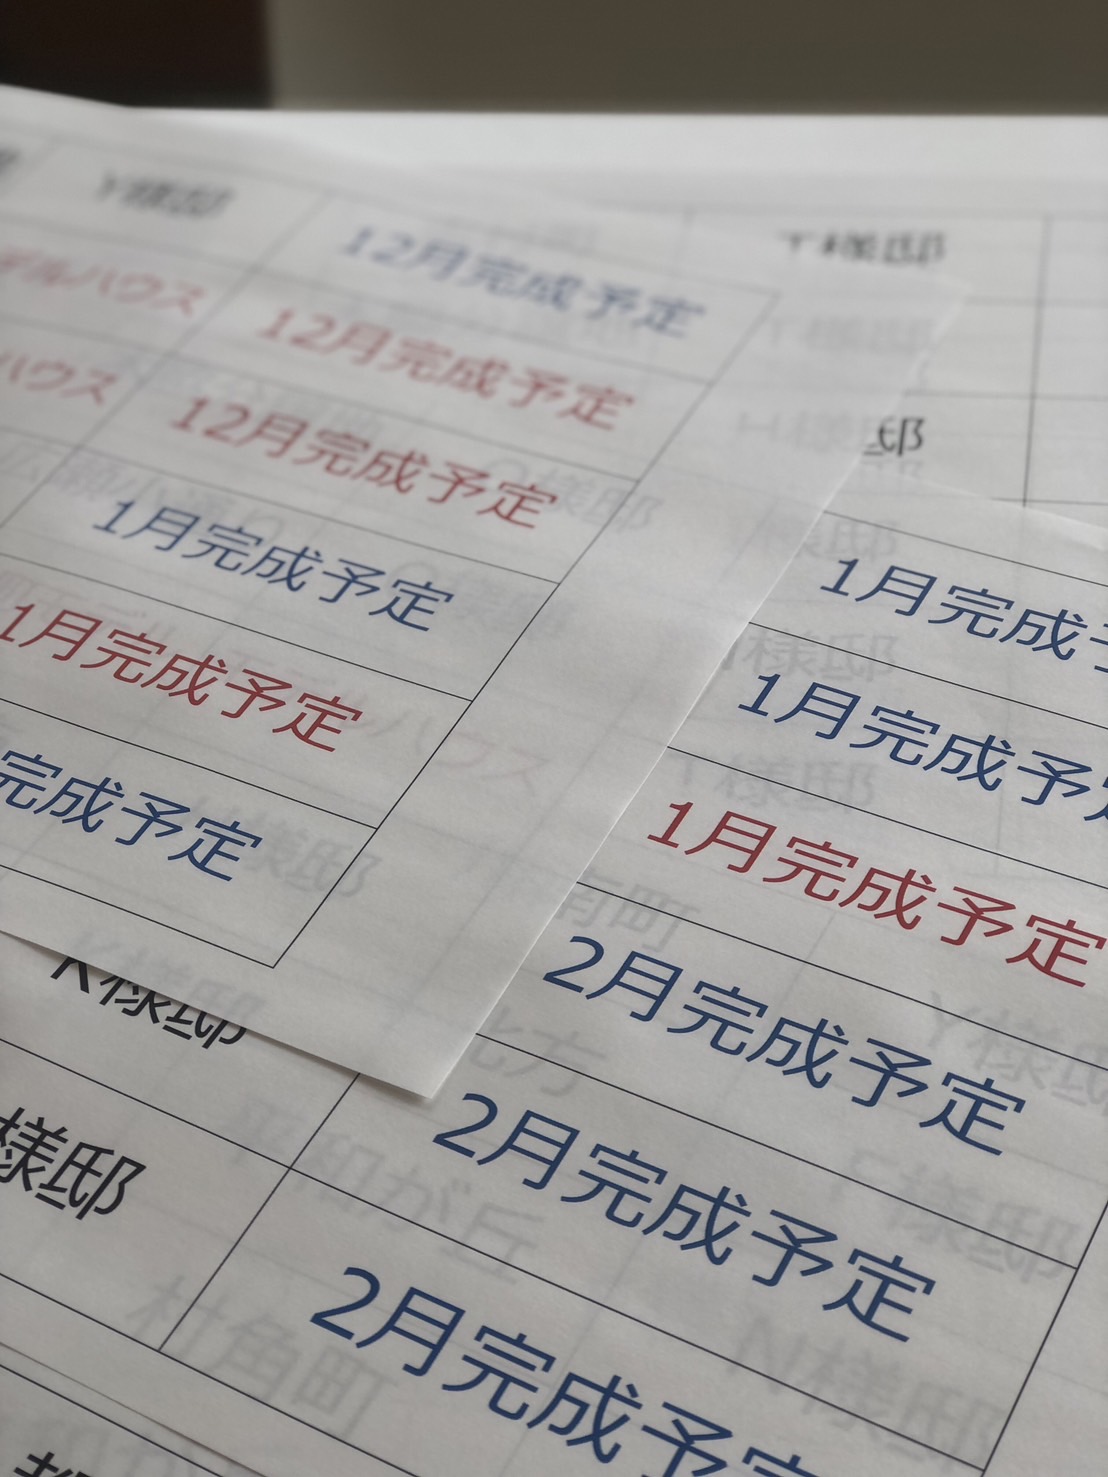 Y様邸 12月完成予定
デルハウス 12月完成予定
ハウス 12月完成予定
1月完成予定
1月完成予定
完成予定
T様邸
邸
1月完成予
1月完成予定
1月完成予定
K様邸 2月完成予定
様邸 2月完成予定
2月完成予定